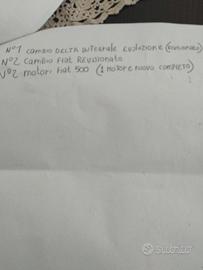 N°1 cambio DELTA integrale EVOLUZIONE (revisionato)
N°2 Cambio Fiat Revisionato
N°2 motori Fiat 500 (1 motore nuovo completo)
subito